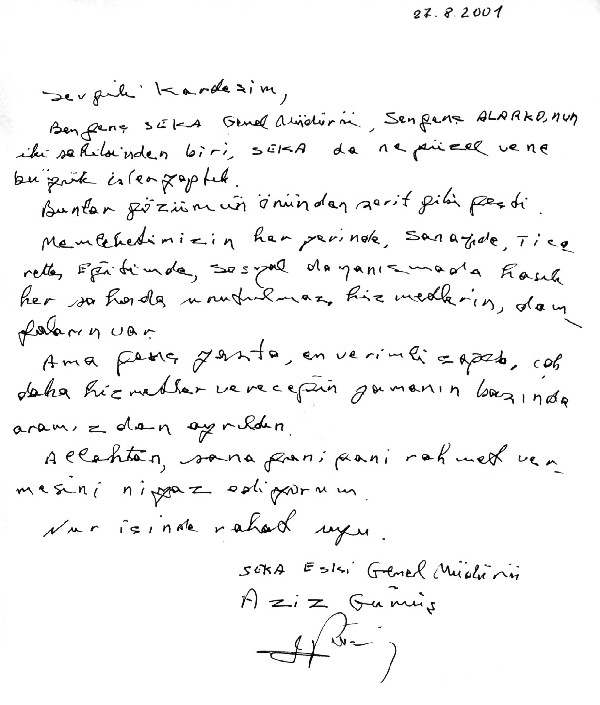 27.8.2001
Sevgili Kardeşim,
Ben genç SEKA Genel Müdürü, Sen genç ALARKO,nun
iki sahibinden biri, SEKA da ne güzel ve ne
büyük işler yaptık.
Bunlar gözümün önünden şerit gibi geçti.
Memleketimizin her yerinde, Sanayide, Tica
rette, Eğitimde, sosyal dayanışmada
her sahada unutulmaz hizmetlerin, dam_
gaların var.
Ama genç yaşta, en verimli çağda, çok
daha hizmetler vereceğin zamanın başında
aramızdan ayrıldın.
Allahtan, sana gani gani rahmet ver_
mesini niyaz ediyorum.
Nur içinde rahat uyu.
SEKA Eski Genel Müdürü
Aziz Gümüş